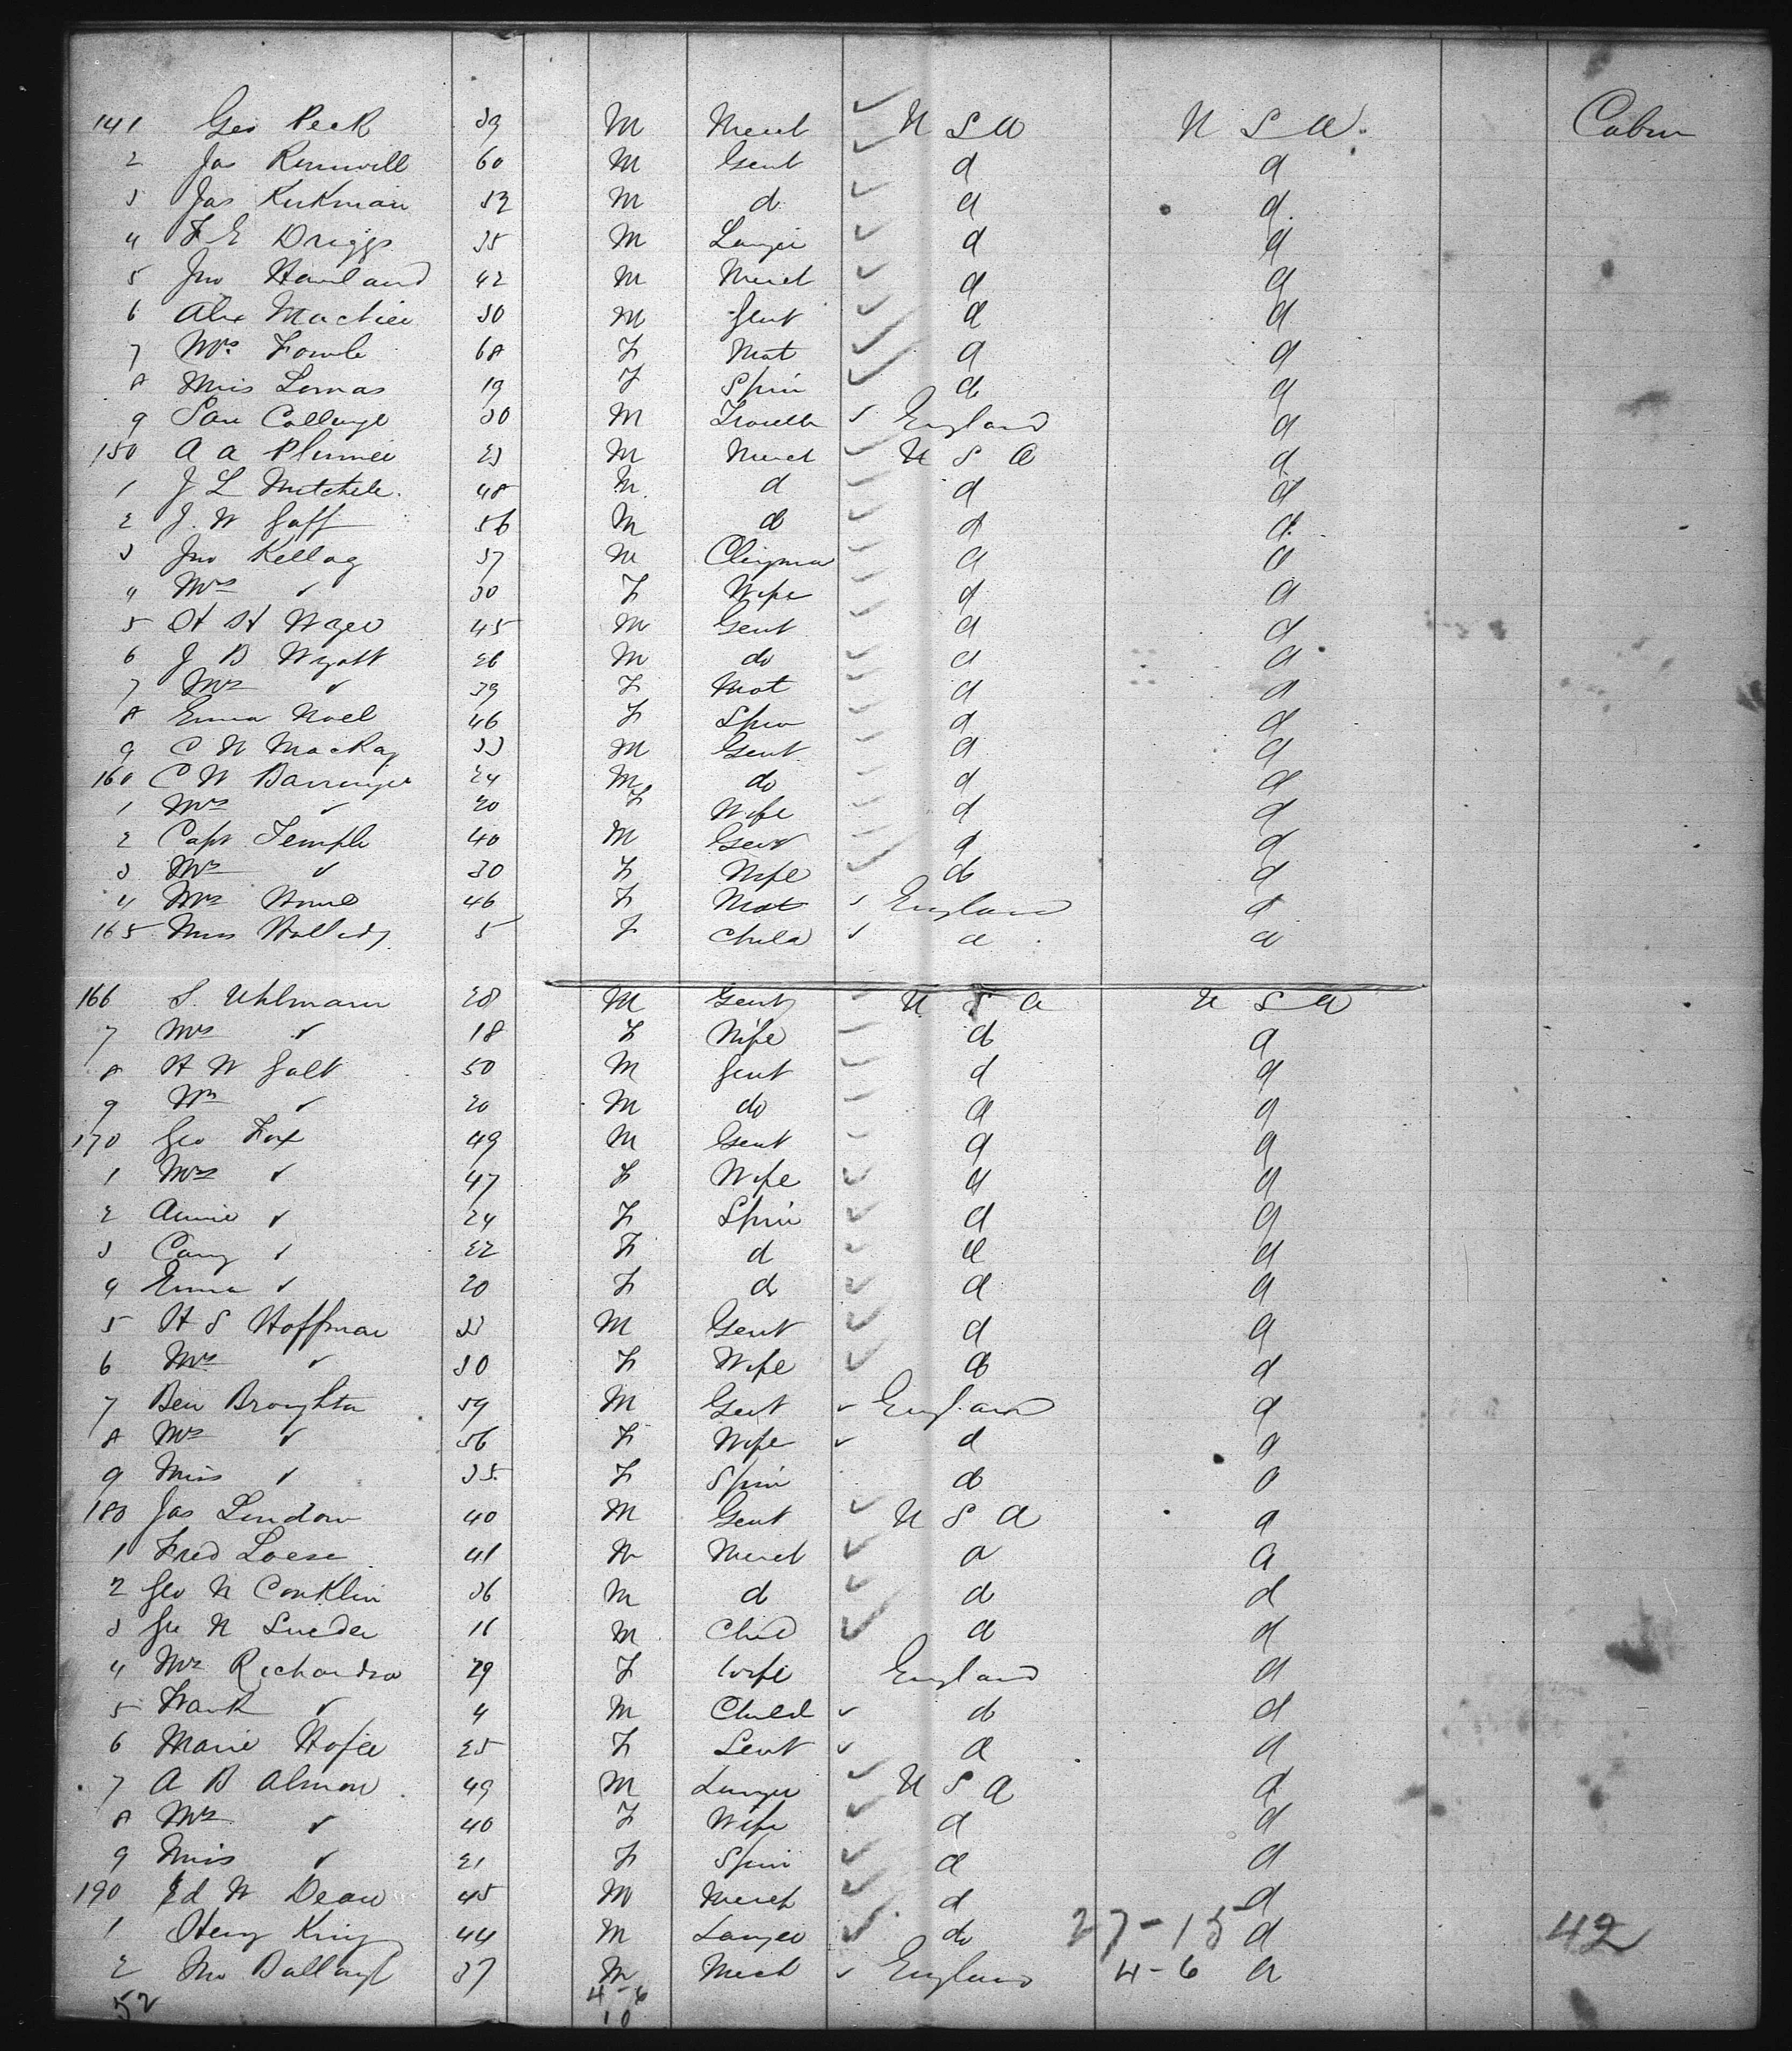 141 Geo Peck 39 M Mercht U S A U S A. Cabin
2 Jas 60 M Gent d d
3 Jas Kirkman 32 M d d d
4 F E Driggs 35 M Lawyer d d
5 Jno Haviland 42 M Mercht d d
6 Alex Mackie 30 M Gent d d
7 Mrs Fowle 68 F Mat d d
8 Miss Lomas 19 F Spin do d
9 30 M England d
150 A A Plumer 23 M Mercht U S A d
1 J L Mitchele. 48 M d d d
2 J. W Goff 56 M do d d
3 Jno Kellog 37 M Clergyma d d
4 Mrs " 30 F Wife d d
5 H H 45 M Gent d d
6 J B Wyatt 26 M do d d
7 Mrs " 39 F Mat d d
8 Emma Noel 46 F Spin d d
9 C W MacKay 33 M Gent d d
160 C W Barringer 24 M do d d
1 Mrs " 20 F Wife d d
2 Capt Temple 40 M Gent d d
3 Mrs " 30 F Wife do d
4 Mrs 46 F Mat England d
165 Miss 5 F Child d d
166 S. Uhlmann 28 M Gent U S A U S A
7 Mrs " 18 F Wife do d
8 H W Galt 50 M Gent d d
9 Wm " 20 M do d d
170 Geo Fox 49 M Gent d d
1 Mrs " 47 F Wife d d
2 Annie " 24 F Spin d d
3 " 22 F d d d
4 Emma " 20 F do d d
5 H S Hoffman 33 M Gent d d
6 Mrs " 30 F Wife do d
7 Ben Broughton 59 M Gent England d
8 Mrs " 56 F Wife d d
9 Miss " 35 F Spin do d
180 Jas Lindow 40 M Gent U S A d
1 Fred Loese 41 M Mercht d d
2 Geo W Conklin 36 M d d d
3 Geo W 11 M Child do d
4 Mrs Richardson 29 F Wife England d
5 Frank " 4 M Child do d
6 Marie Hofer 25 F Sevt d d
7 A B Almon 49 M Lawyer U S A d
8 Mrs " 40 F Wife d d
9 Miss " 21 F Spin d d
190 Ed W Dean 45 M Merch d d
1 Henry King 44 M Lawyer do 27-15 d 42
2 Jno 37 M Mech England 4-6 d
52 4-6
10